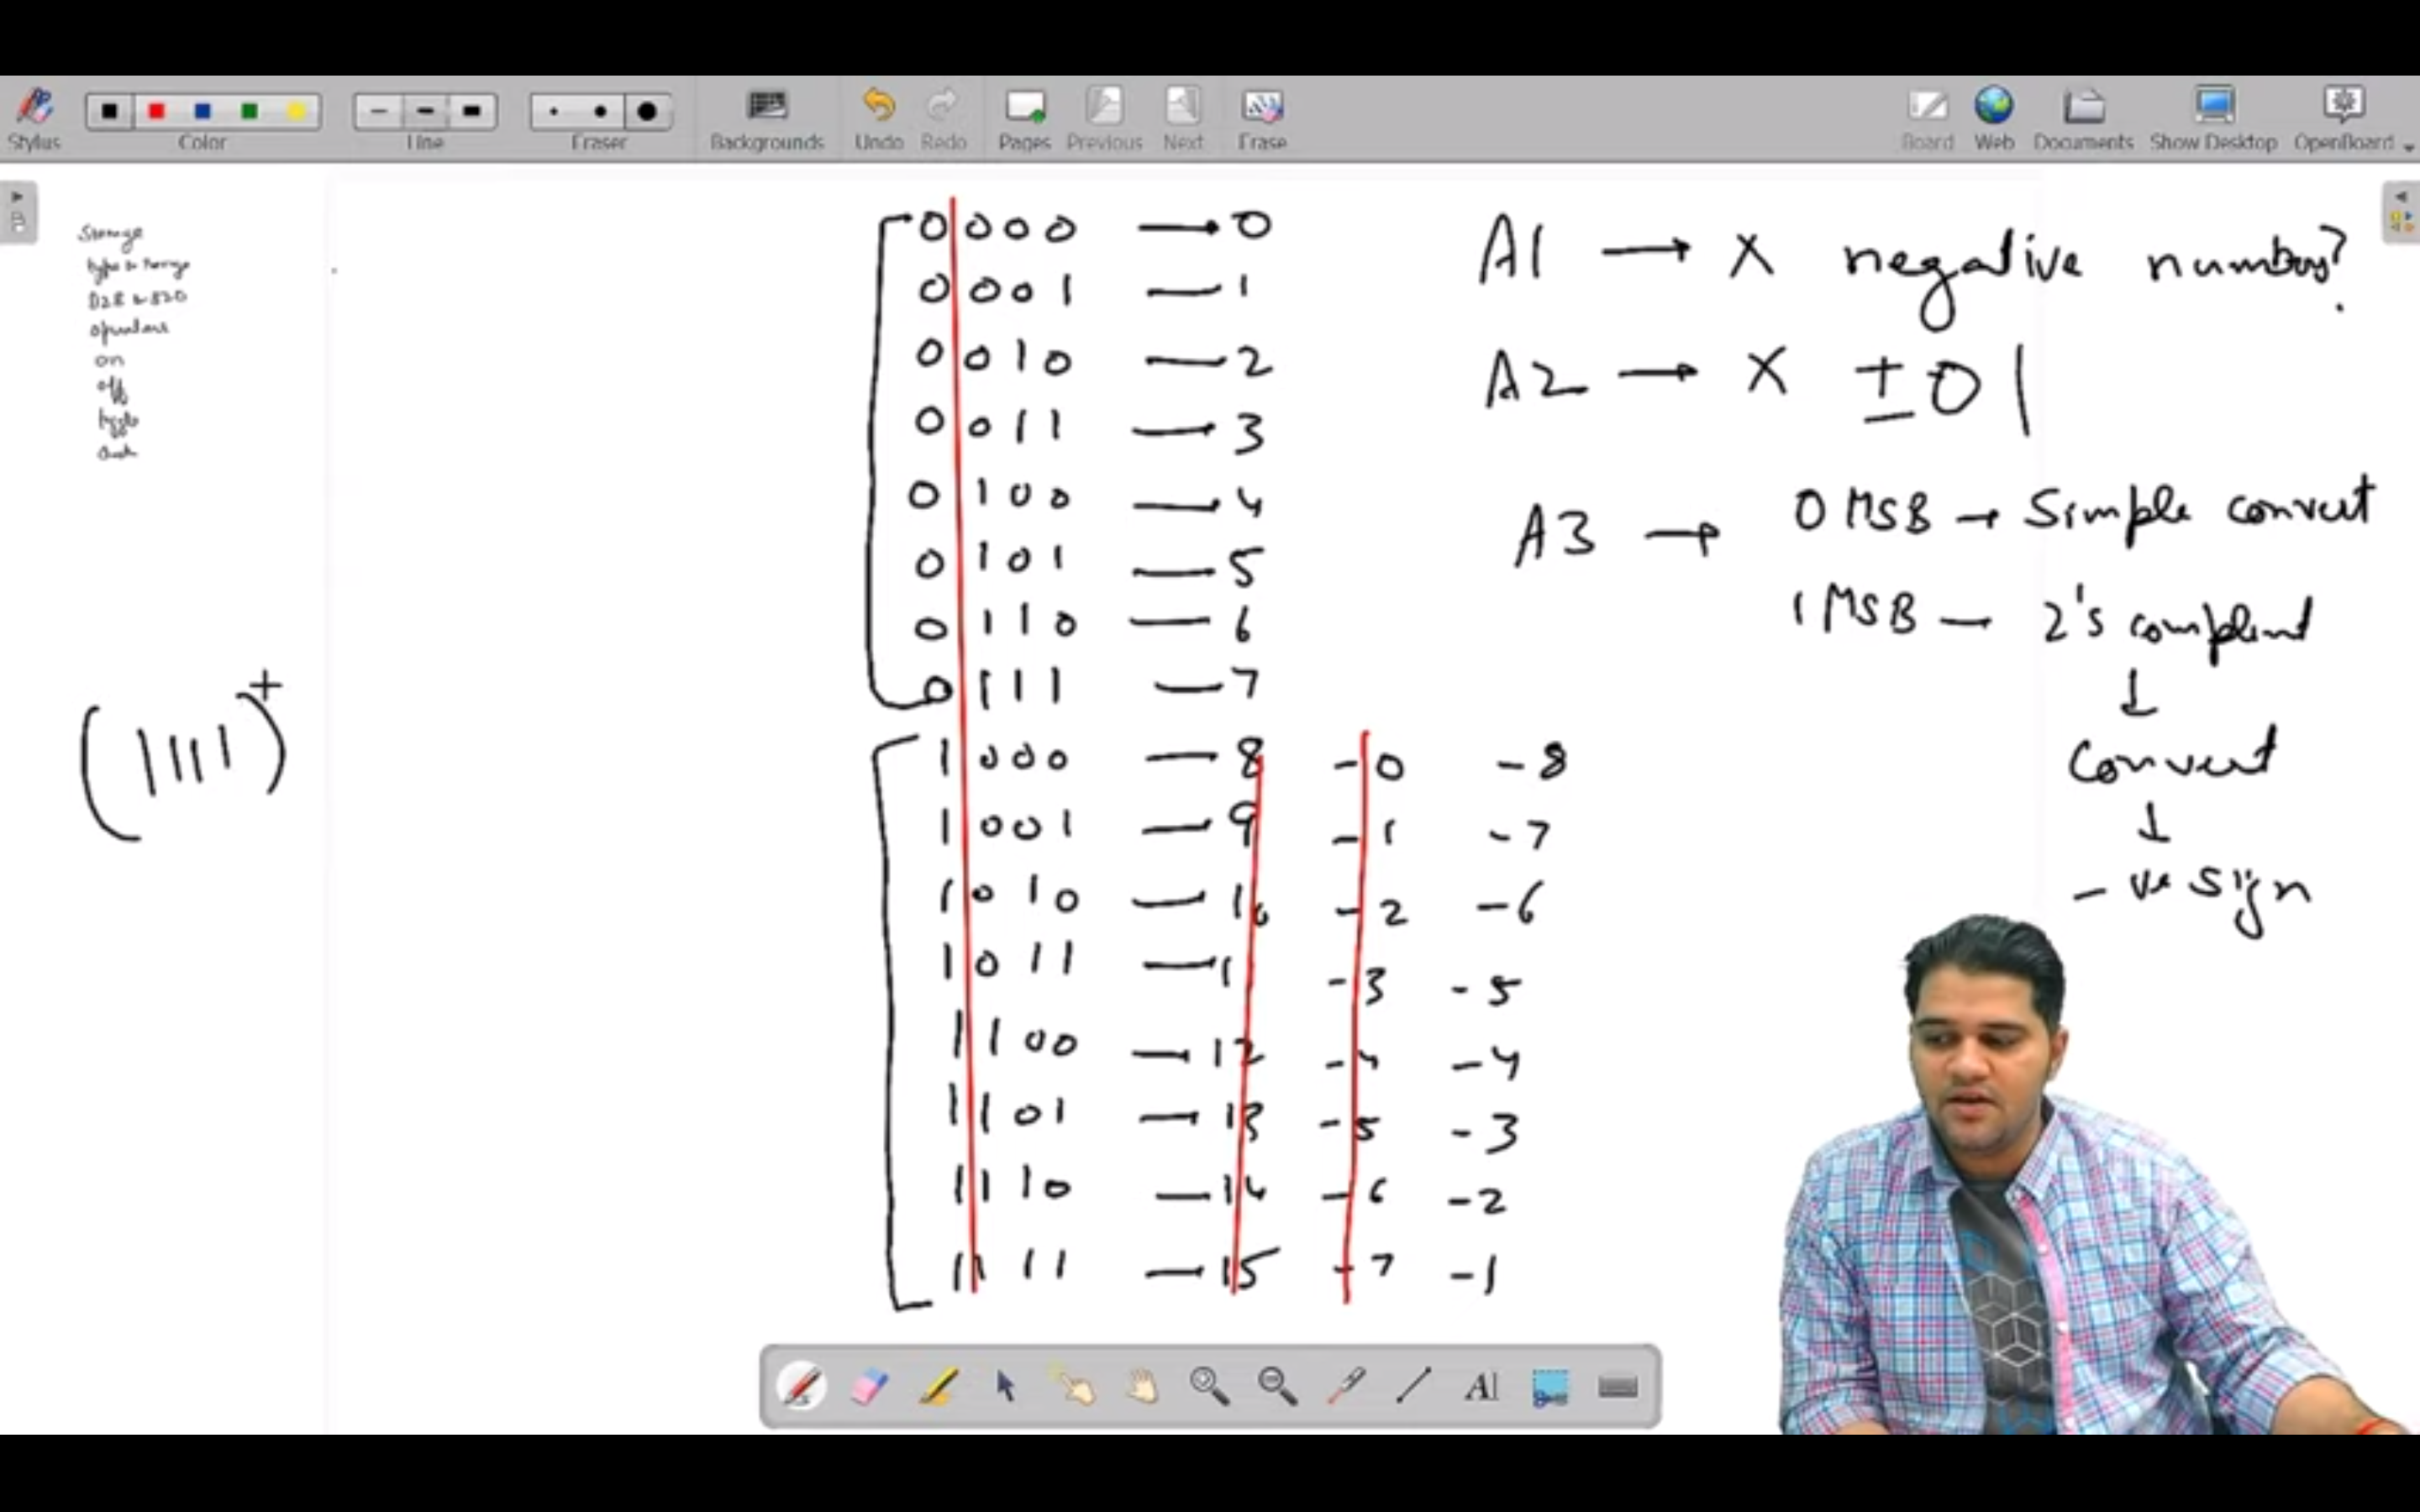 Stylus Color Line Eraser Backgrounds Undo Redo Pages Previous Next Erase Board Web Documents Show Desktop OpenBoard
B
Storage
type
operators
on
off
toggle
(1111)+
0 0 0 0 → 0
0 0 0 1 — 1
0 0 1 0 — 2
0 0 1 1 — 3
0 1 0 0 — 4
0 1 0 1 — 5
0 1 1 0 — 6
0 1 1 1 — 7
1 0 0 0 — 8 -0 -8
1 0 0 1 — 9 -1 -7
1 0 1 0 — 10 -2 -6
1 0 1 1 — 1 -3 -5
1 1 0 0 — 12 -4 -4
1 1 0 1 — 13 -5 -3
1 1 1 0 — 14 -6 -2
1 1 1 1 — 15 -7 -1
A1 → X negative numbers?
A2 → X ±0
A3 → 0 MSB → Simple convert
1 MSB — 2's
↓
Convert
↓
- ve sign
AI